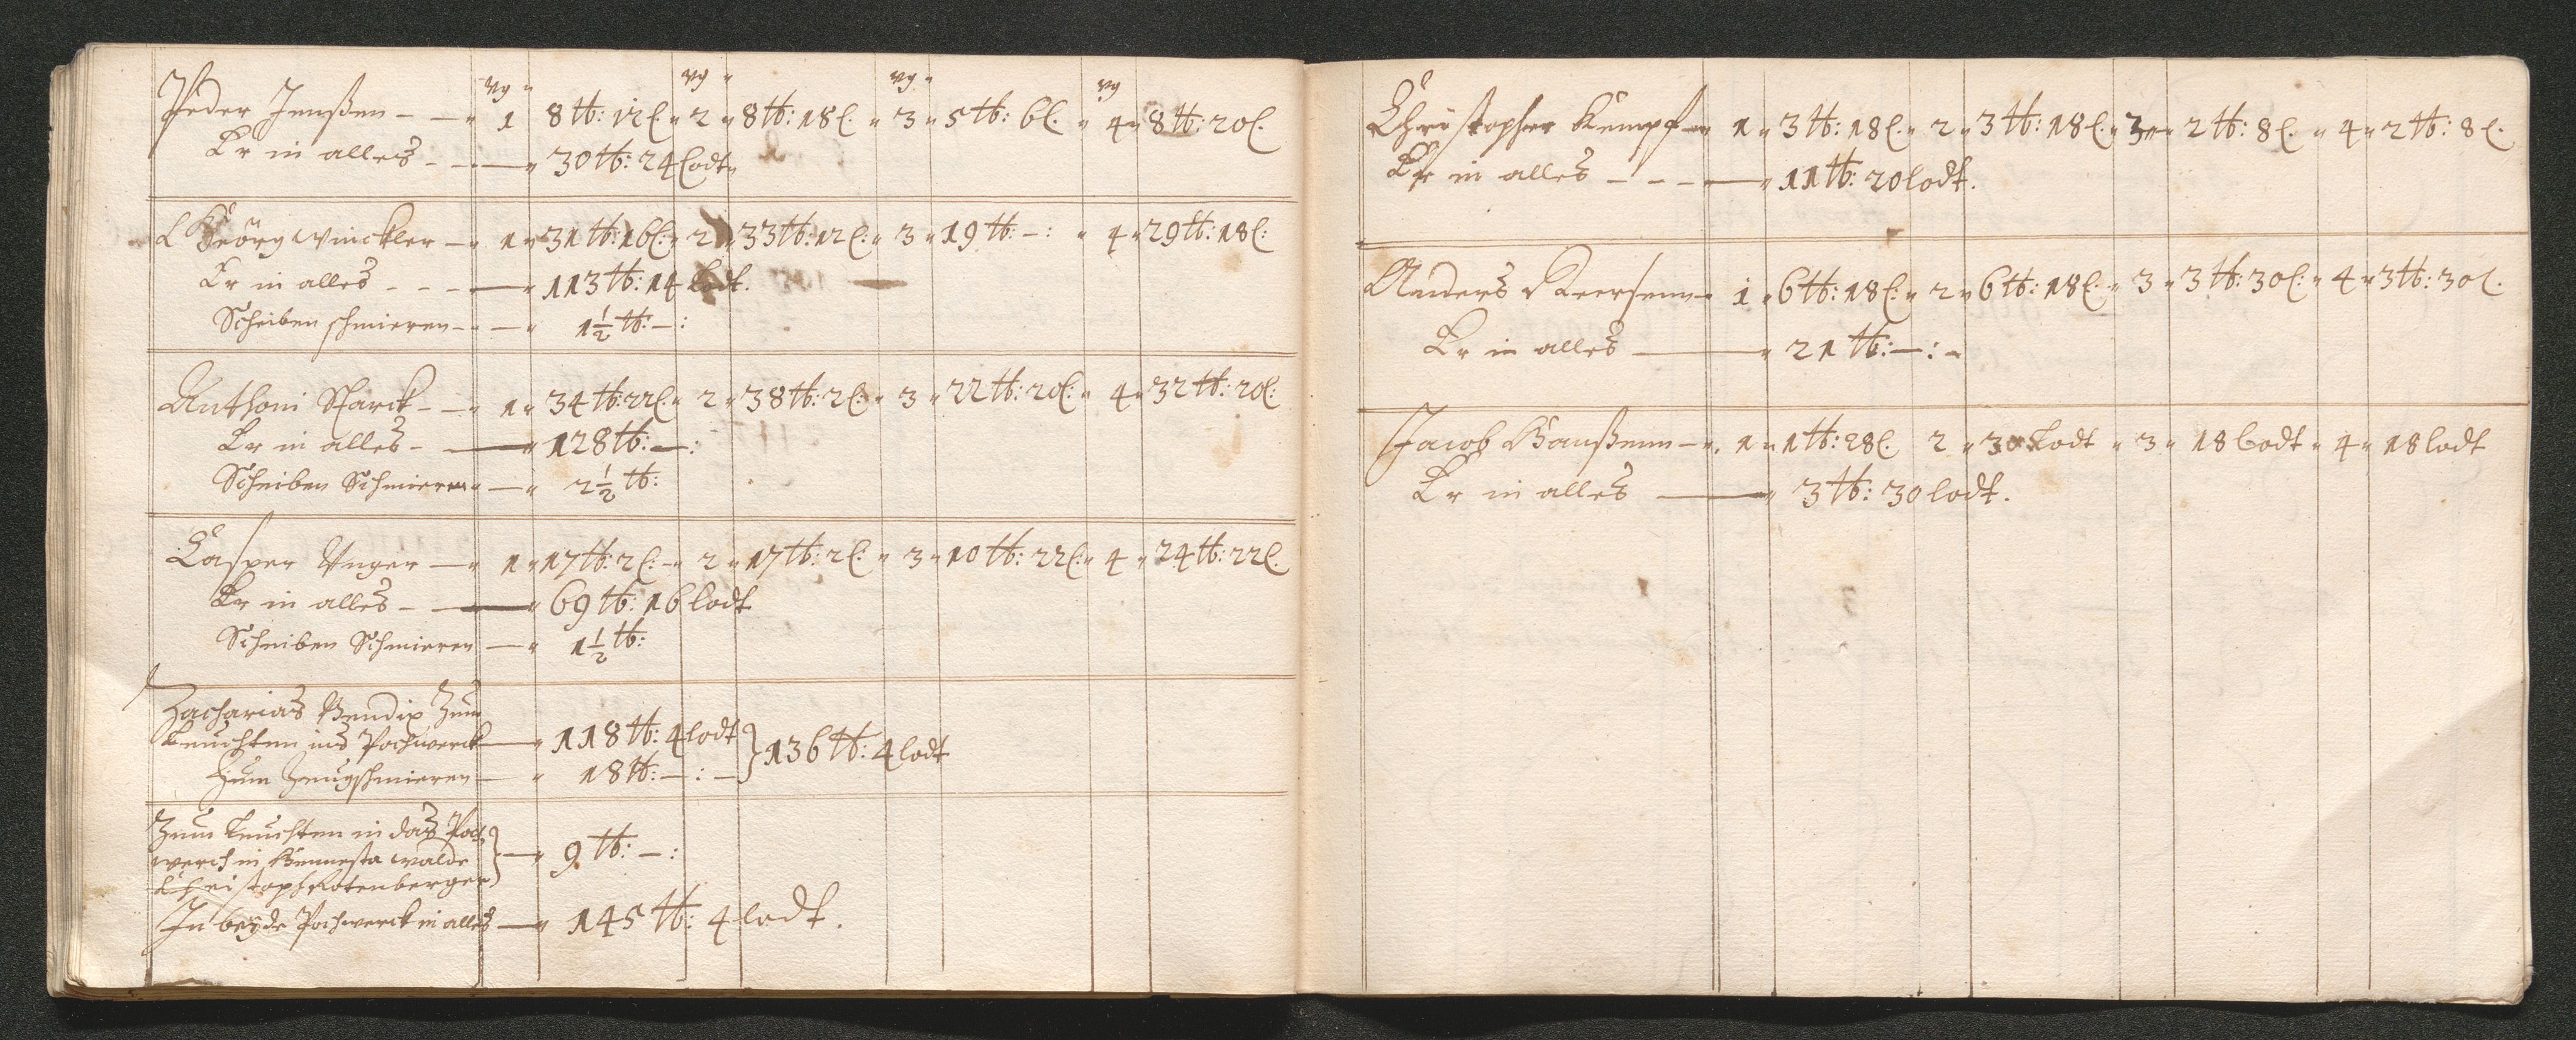 vg " vg " vg " vg
Peder Jenßen - - " 1 8 ℔: 12 l: " 2 " 8 ℔: 18 l. " 3 " 5 ℔: 6 l. " 4 " 8 ℔: 20 l.
Er in alles - - — " 30 ℔: 24 lodt "
Geörg Winckler - " 1 " 31 ℔: 16 l: " 2 " 33 ℔: 12 l: " 3 " 19 ℔: - : " 4 " 29 ℔: 18 l:
Er in alles - - - — " 113 ℔: 14 lodt.
Scheiben schmieren - - — " 1½ ℔: - :
Anthoni Starck - - " 1 " 34 ℔: 22 l: " 2 " 38 ℔: 2 l: " 3 " 22 ℔: 20 l: " 4 " 32 ℔: 20 l:
Er in alles - — " 128 ℔: — :
Scheiben Schmieren " — " 2½ ℔:
Casper Unger — " 1 " 17 ℔: 2 l: - " 2 " 17 ℔: 2 l: " 3 " 10 ℔: 22 l: " 4 " 24 ℔: 22 l.
Er in alles - — " 69 ℔: 16 lodt
Scheiben Schmieren — " 1½ ℔:
Zacharias Bendix Zum
Leuchten ins Pochwerck — " 118 ℔: 4 lodt } 136 ℔: 4 lodt
Zum Zeugschmieren — " 18 ℔: - : -
Zum Leuchten in das Poch
werch in walde } — " 9 ℔: - :
Christoph Rotenberger
In beÿde Pochwerck in alles — " 145 ℔: 4 lodt.
Christopher Kempf " 1 " 3 ℔: 18 l. " 2 " 3 ℔: 18 l. " 3 " 2 ℔: 8 l. " 4 " 2 ℔: 8 l.
Er in alles - - - — " 11 ℔: 20 lodt.
Anders " 1 " 6 ℔: 18 l: " 2 " 6 ℔: 18 l: " 3 " 3 ℔: 30 l: " 4 " 3 ℔: 30 l.
Er in alles — " 21 ℔: — : "
Jacob Hanßenn - ". 1 " 1 ℔: 28 l. 2 " 30 Lodt " 3 " 18 Lodt " 4 " 18 lodt
Er in alles — " 3 ℔: 30 lodt.